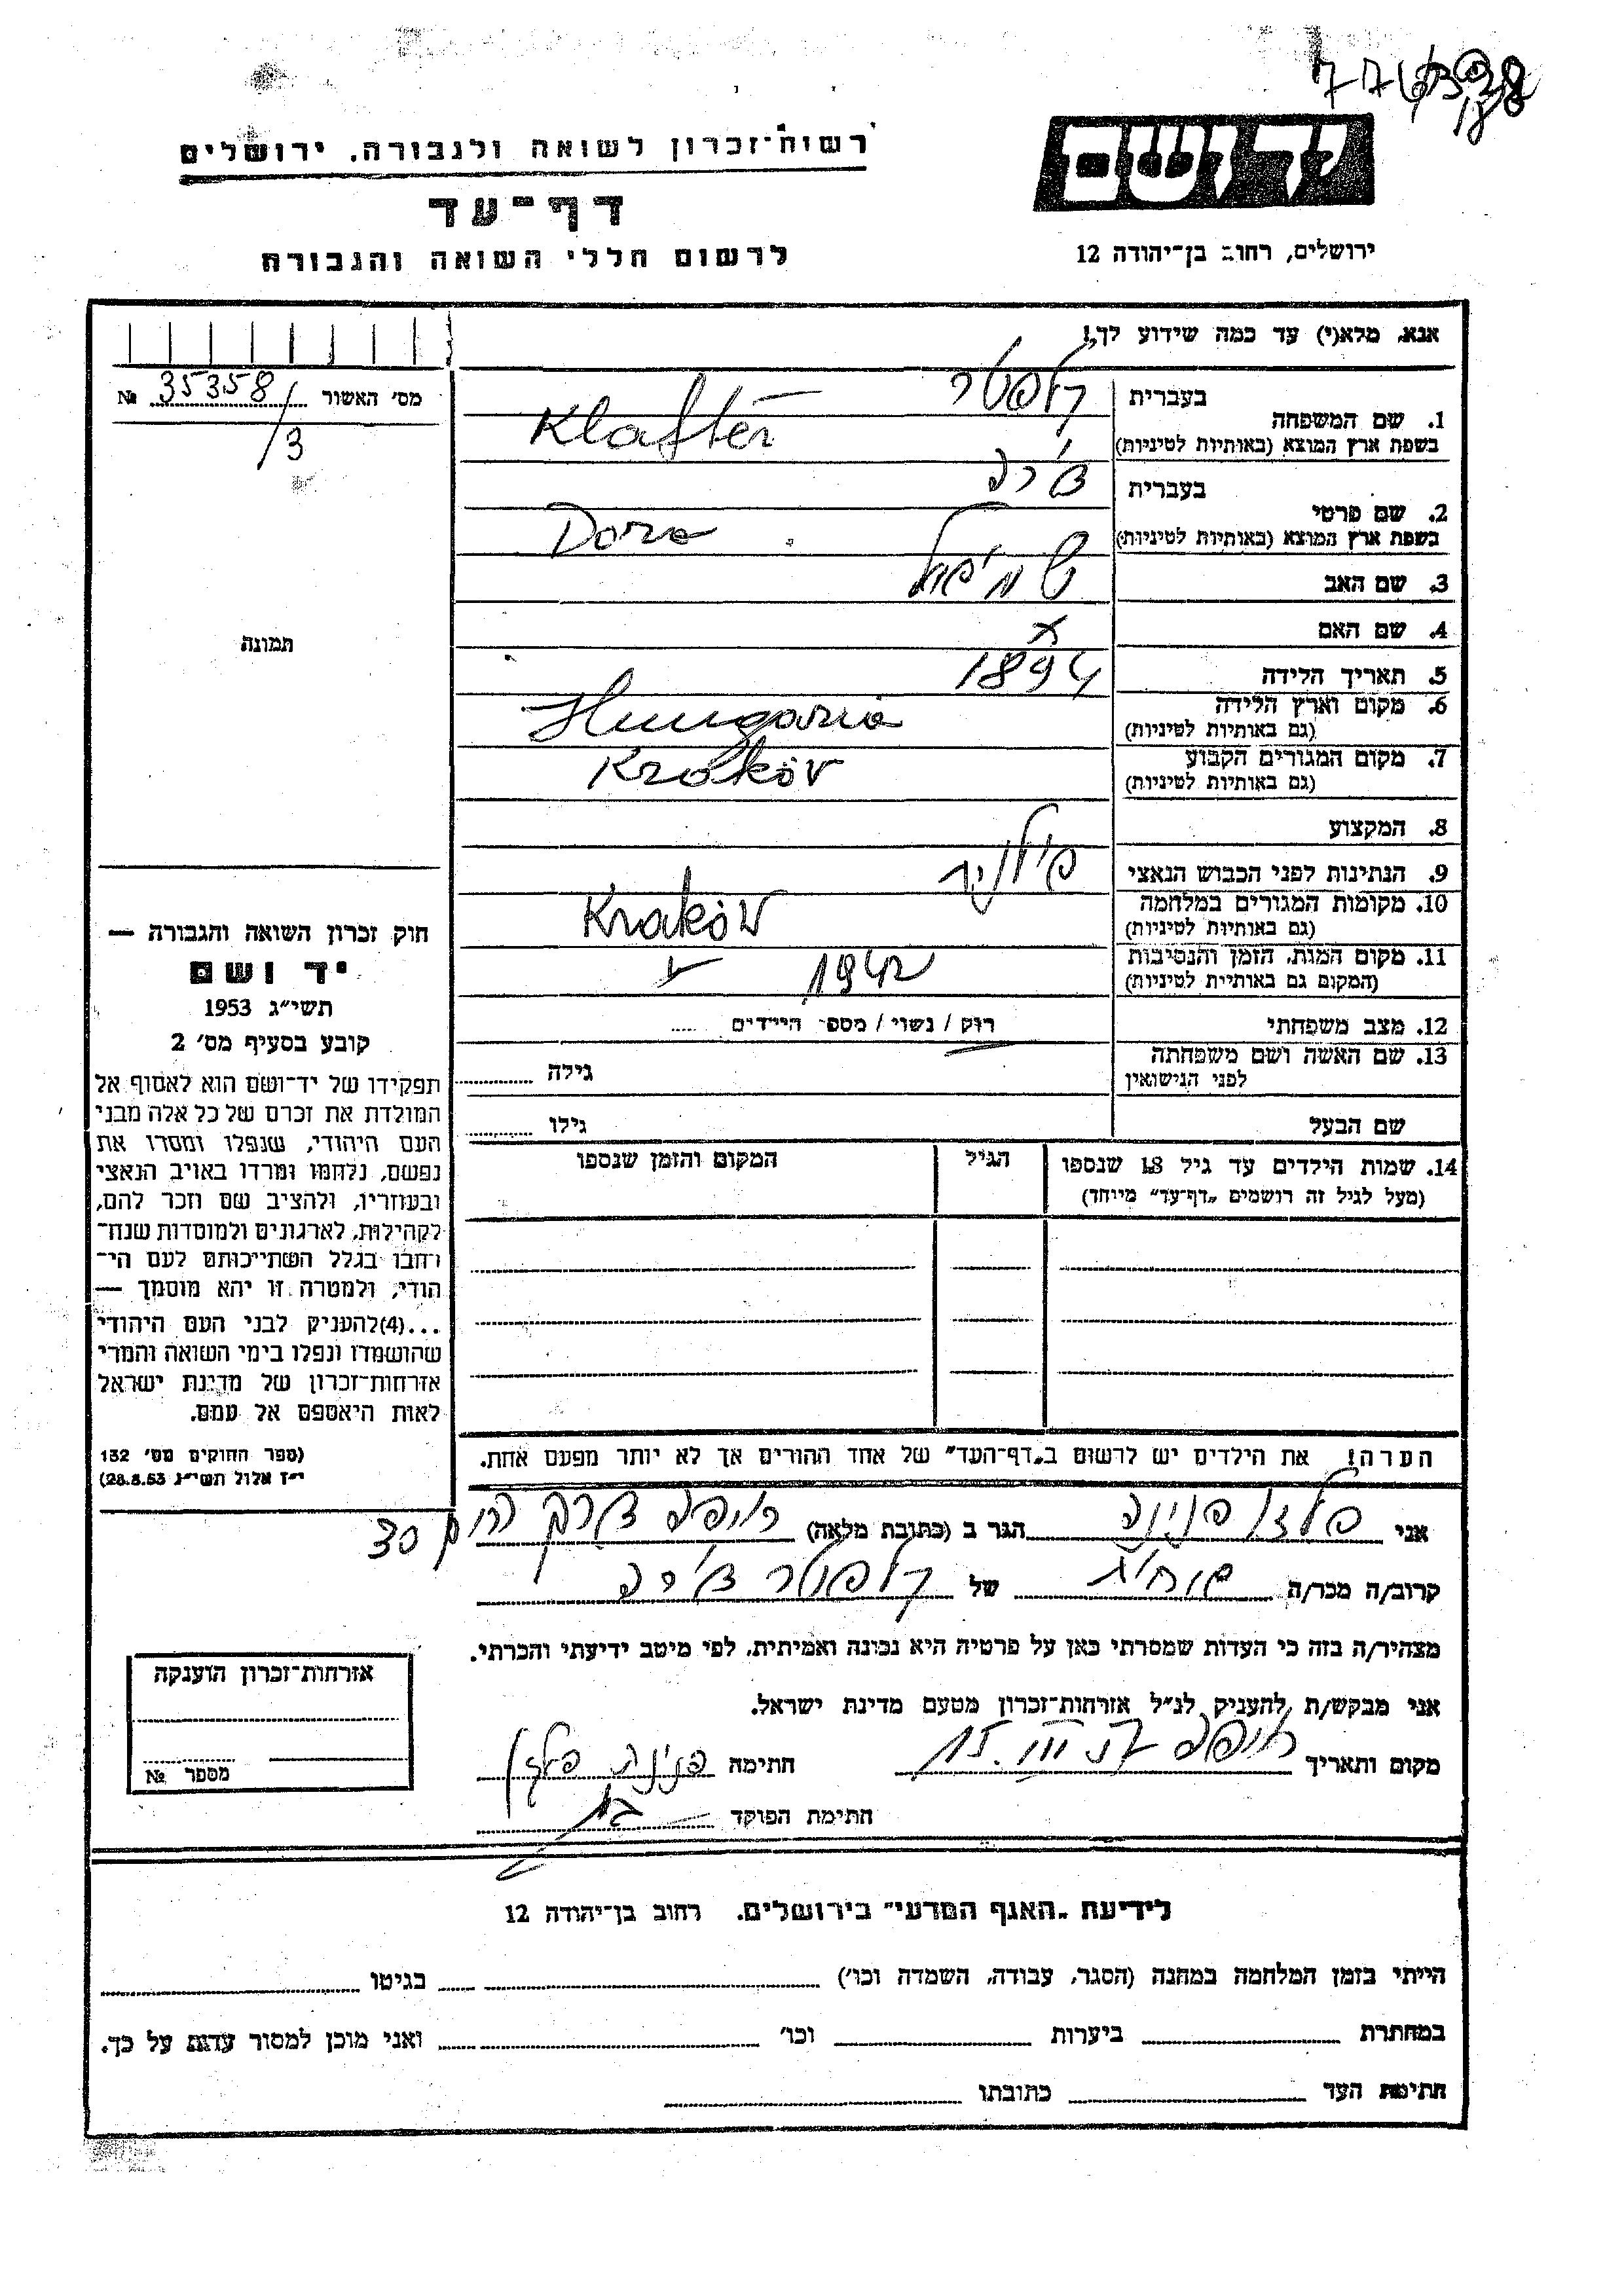 רשות־זכרון לשואה ולגבורה, ירושלים
דף־עד
לרשום חללי השואה והגבורה
יד ושם
ירושלים, רחוב בן־יהודה 12
אנא, מלא(י) עד כמה שידוע לך!
מס׳ האשור № 35358/3
1. שם המשפחה
בעברית קלפטר
בשפת ארץ המוצא (באותיות לטיניות) Klafter
2. שם פרטי
בעברית
בשפת ארץ המוצא (באותיות לטיניות) Dora
3. שם האב
4. שם האם
5. תאריך הלידה 1894
6. מקום וארץ הלידה (גם באותיות לטיניות) Hungaria
7. מקום המגורים הקבוע (גם באותיות לטיניות) Kraków
8. המקצוע
9. הנתינות לפני הכבוש הנאצי
10. מקומות המגורים במלחמה (גם באותיות לטיניות) Kraków
11. מקום המות, הזמן והנסיבות (המקום גם באותיות לטיניות) 1942
12. מצב משפחתי רווק / נשוי / מספר הילדים .....
13. שם האשה ושם משפחתה לפני הנישואין גילה
שם הבעל גילו
14. שמות הילדים עד גיל 18 שנספו הגיל המקום והזמן שנספו
(מעל לגיל זה רושמים „דף־עד״ מיוחד)
הערה! את הילדים יש לרשום ב„דף־העד״ של אחד ההורים אך לא יותר מפעם אחת.
תמונה
חוק זכרון השואה והגבורה —
יד ושם
תשי״ג 1953
קובע בסעיף מס׳ 2
תפקידו של יד־ושם הוא לאסוף אל
המולדת את זכרם של כל אלה מבני
העם היהודי, שנפלו ומסרו את
נפשם, נלחמו ומרדו באויב הנאצי
ובעוזריו, ולהציב שם וזכר להם,
לקהילות, לארגונים ולמוסדות שנח־
רבו בגלל השתייכותם לעם הי־
הודי, ולמטרה זו יהא מוסמך —
...(4)להעניק לבני העם היהודי
שהושמדו ונפלו בימי השואה והמרי
אזרחות־זכרון של מדינת ישראל
לאות היאספם אל עמם.
(ספר החוקים מס׳ 132
י״ז אלול תשי״ג 28.8.53)
אני הגר ב (כתובת מלאה) חיפה 30
קרוב/ה מכר/ה של קלפטר
מצהיר/ה בזה כי העדות שמסרתי כאן על פרטיה היא נכונה ואמיתית, לפי מיטב ידיעתי והכרתי.
אני מבקש/ת להעניק לנ״ל אזרחות־זכרון מטעם מדינת ישראל.
מקום ותאריך חיפה חתימה פנינה
חתימת הפוקד
אזרחות־זכרון הוענקה
מספר №
לידיעת „האגף המדעי״ בירושלים, רחוב בן־יהודה 12
הייתי בזמן המלחמה במחנה (הסגר, עבודה, השמדה וכו׳) בגיטו
במחתרת ביערות וכו׳ ואני מוכן למסור עדות על כך.
חתימת העד כתובתו